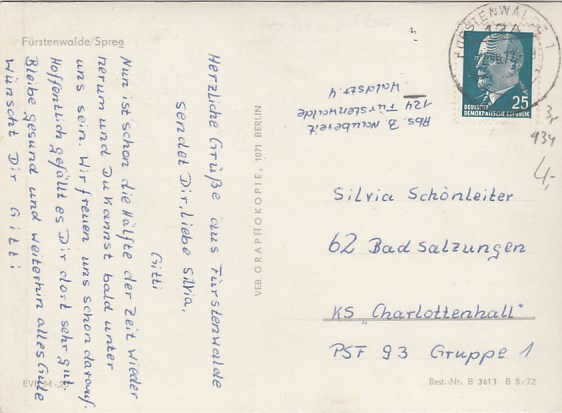 Fürstenwalde/Spree
Herzliche Grüße aus Fürstenwalde
sendet Dir, liebe Silvia,
Gitti
Nun ist schon die Hälfte der Zeit wieder
herum und Du kannst bald unter
uns sein. Wir freuen uns schon darauf.
Hoffentlich gefällt es Dir dort sehr gut.
Bleibe gesund und weiterhin alles Gute
wünscht Dir Gitti
VEB GRAPHOKOPIE, 1071 BERLIN
Abs. B. Neubereit
124 Fürstenwalde
Waldstr. 4
FÜRSTENWALDE 1
124
DEUTSCHE
DEMOKRATISCHE REPUBLIK
25
934
4,-
Silvia Schönleiter
62 Bad Salzungen
KS "Charlottenhall"
PSF 93 Gruppe 1
Best.-Nr. B 3413 B 8/72